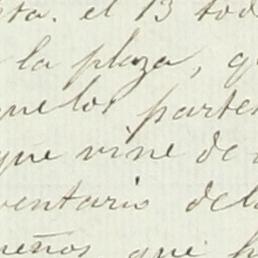 ta. el 13 tod
la plaza, q
que los parte
que vine de
ventario del
eños que